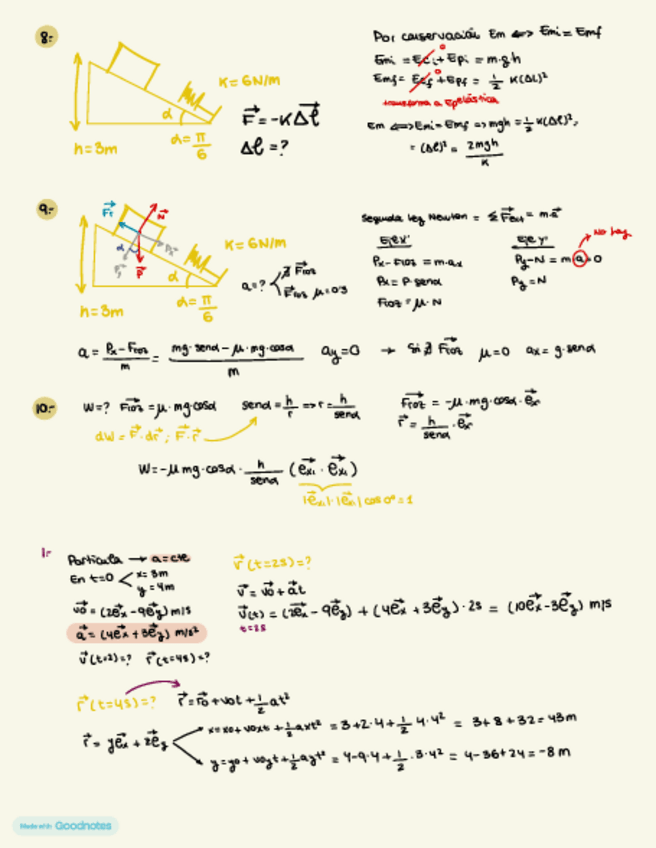 8.-
K = 6N/m
α
h = 3m
α = π/6
F⃗ = -KΔl⃗
Δl = ?
Por conservación Em ⟺ Emi = Emf
Emi = Eci + Epi = m·g·h
0
Emf = Ecf + Epf = 1/2 K(Δl)²
0
transforma a Epelástica
Em ⟺ Emi = Emf => mgh = 1/2 K(Δl)²;
= (Δl)² = 2mgh/K
9.-
Fr⃗
N⃗
Px⃗
Py⃗
P⃗
α
α
K = 6N/m
h = 3m
α = π/6
a = ?
∄ Froz⃗
Froz⃗ μ = 0'3
Segunda ley Newton = Σ Fext⃗ = m·a⃗
Eje X'
Px - Froz = m·ax
Px = P·senα
Froz = μ·N
Eje Y'
Py - N = m·a = 0
No hay
Py = N
a = Px - Froz / m = mg·senα - μ·mg·cosα / m ay = 0 → Si ∄ Froz⃗ μ = 0 ax = g·senα
10.-
W = ? Froz⃗ = μ·mg·cosα senα = h/r => r = h/senα
dW = F⃗·dr⃗; F⃗·r⃗
Froz⃗ = -μ·mg·cosα·ex⃗
r⃗ = h/senα · ex⃗
W = -μ mg·cosα · h/senα (ex1⃗ · ex1⃗)
|ex1⃗|·|ex1⃗| cos 0º = 1
1.-
Partícula → a = cte
En t=0
x = 3m
y = 4m
v0⃗ = (2ex⃗ - 9ey⃗) m/s
a⃗ = (4ex⃗ + 3ey⃗) m/s²
v⃗(t=2) = ? r⃗(t=4s) = ?
v⃗(t=2s) = ?
v⃗ = v0⃗ + a⃗t
v⃗(t) = (2ex⃗ - 9ey⃗) + (4ex⃗ + 3ey⃗)·2s = (10ex⃗ - 3ey⃗) m/s
t=2s
r⃗(t=4s) = ? r⃗ = r0⃗ + v0t + 1/2 at²
r⃗ = yex⃗ + zey⃗
x = x0 + v0xt + 1/2 axt² = 3 + 2·4 + 1/2 4·4² = 3 + 8 + 32 = 43m
y = y0 + v0yt + 1/2 ayt² = 4 - 9·4 + 1/2 · 3·4² = 4 - 36 + 24 = -8 m
Made with Goodnotes